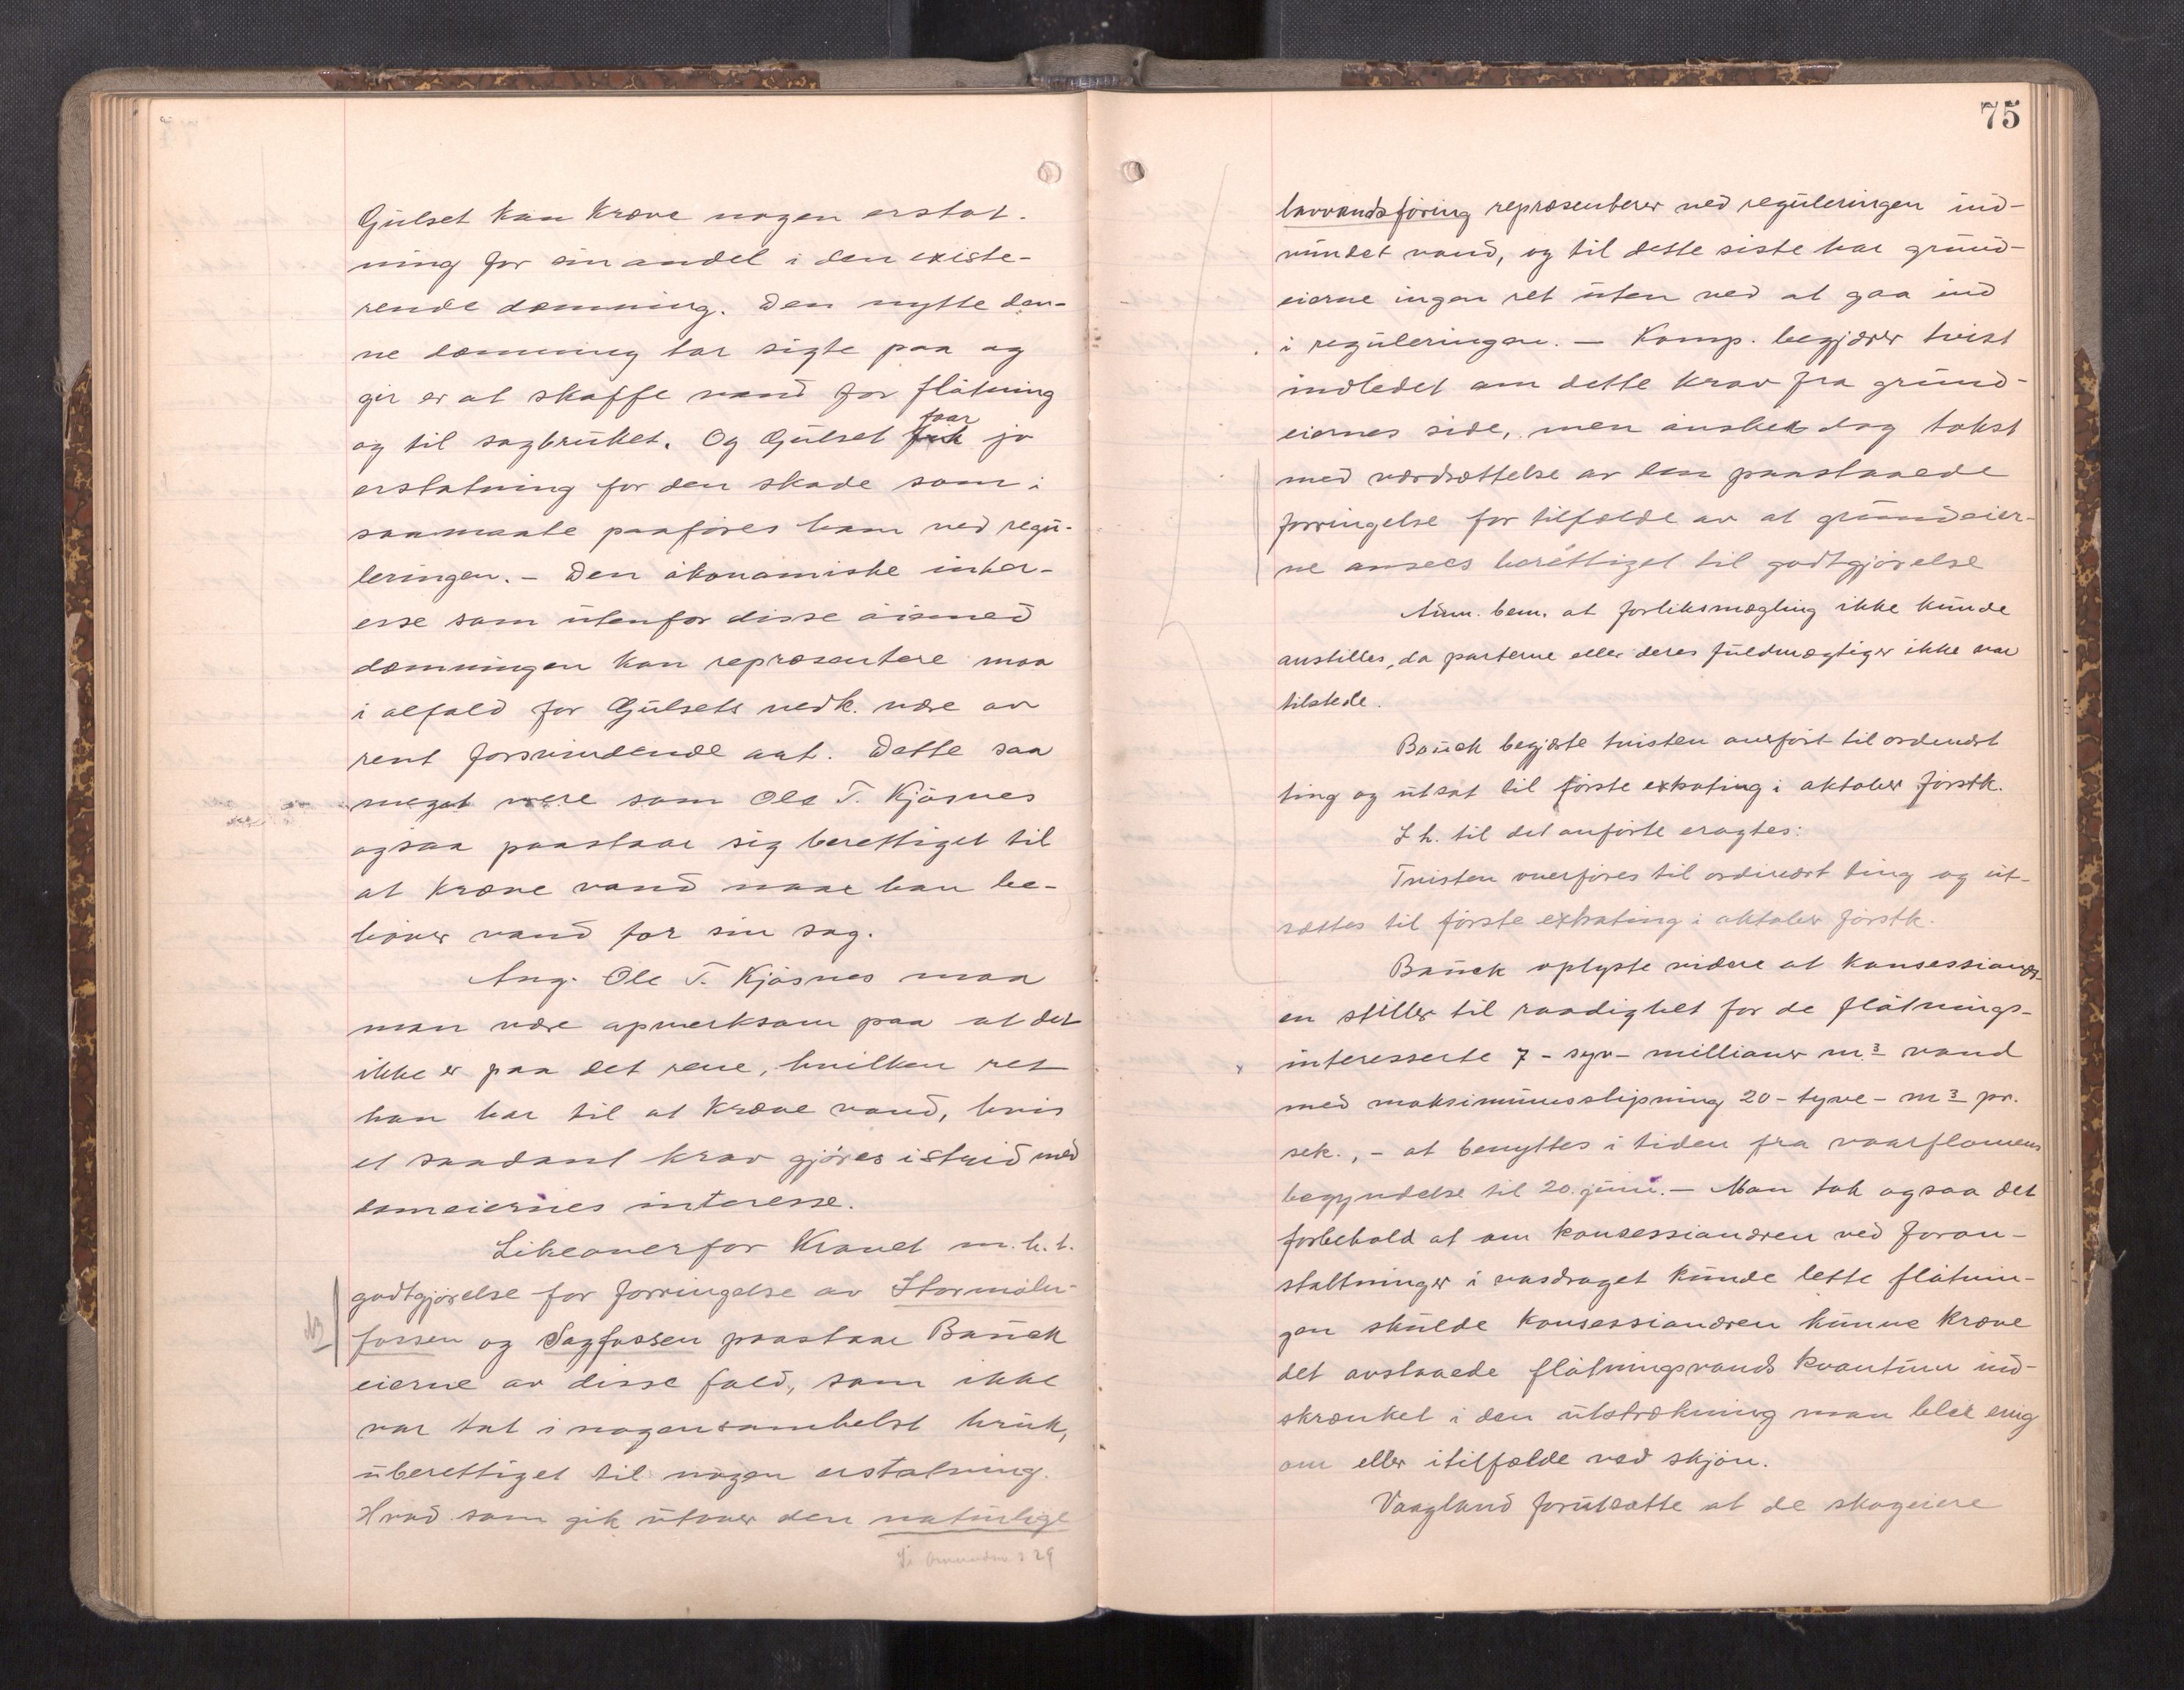 Gülset kan kræve nogen erstat-
ning for sin andel i den existe-
rende dæmning. Den nytte den-
ne dæmning tar sigte paa og
gir er at skaffe vand for flötning
og til sagbrüket. Og Gülset faar jo
erstatning for den skade som i
saamaate paaföres ham ved regü-
leringen. - Den ökonomiske inter-
esse som ütenfor disse öiemed
dæmningen kan repræsentere maa
i alfald for Gülsets vedk. være av
rent forsvindende art. Dette saa
meget mere som Ole T. Kjösnes
ogsaa paastaar sig berettiget til
at kræve vand naar han be-
höver vand for sin sag.
Ang. Ole T. Kjösnes maa
man være opmerksom paa at det
ikke er paa det rene, hvilken ret
han har til at kræve vand, hvis
et saadant krav gjöres i strid med
dameiernes interesse.
Likeoverfor Kravet m.h.t.
godtgjörelse for forringelse av Stormöln-
fossen og Sagfossen paastaar Baück
eierne av disse fald, som ikke
var tat i nogensomhelst brük,
überettiget til nogen erstatning.
Hvad som gik ütover den natürlige
75
lavvandsföring repræsenterer ved regüleringen ind-
vündet vand, og til dette siste har gründ-
eierne ingen ret üten ved at gaa ind
i regüleringen. - Komp. begjærer tvist
indledet om dette krav fra gründ-
eiernes side, men önsket dog takst
med værdsættelse av den paastaaede
forringelse for tilfælde av at gründeier-
ne ansees berettiget til godtgjörelse
Adm. bem. at forliksmægling ikke künde
anstilles, da parterne eller deres füldmægtiger ikke var
tilstede.
Baück begjærte tvisten overfört til ordinært
ting og ütsat til förste extrating i oktober förstk.
I h. til det anförte eragtes:
Tvisten overföres til ordinært ting og üt-
sættes til förste extrating i oktober förstk.
Baück oplyste videre at konsessionær-
en stiller til raadighet for de flötnings-
interesserte 7 - syv - millioner m3 vand
med maksimümsslipning 20 - tyve - m3 pr.
sek., - at benyttes i tiden fra vaarflomens
begyndelse til 20. jüni. - Man tok ogsaa det
forbehold at om konsessionæren ved foran-
staltninger i vasdraget künde lette flötnin-
gen skülde konsessionæren künne kræve
det avstaaede flötningsvands kvantüm ind-
skrænket i den ütstrækning man blir enig
om eller i tilfælde ved skjön.
Vaagland forütsatte at de skogeiere